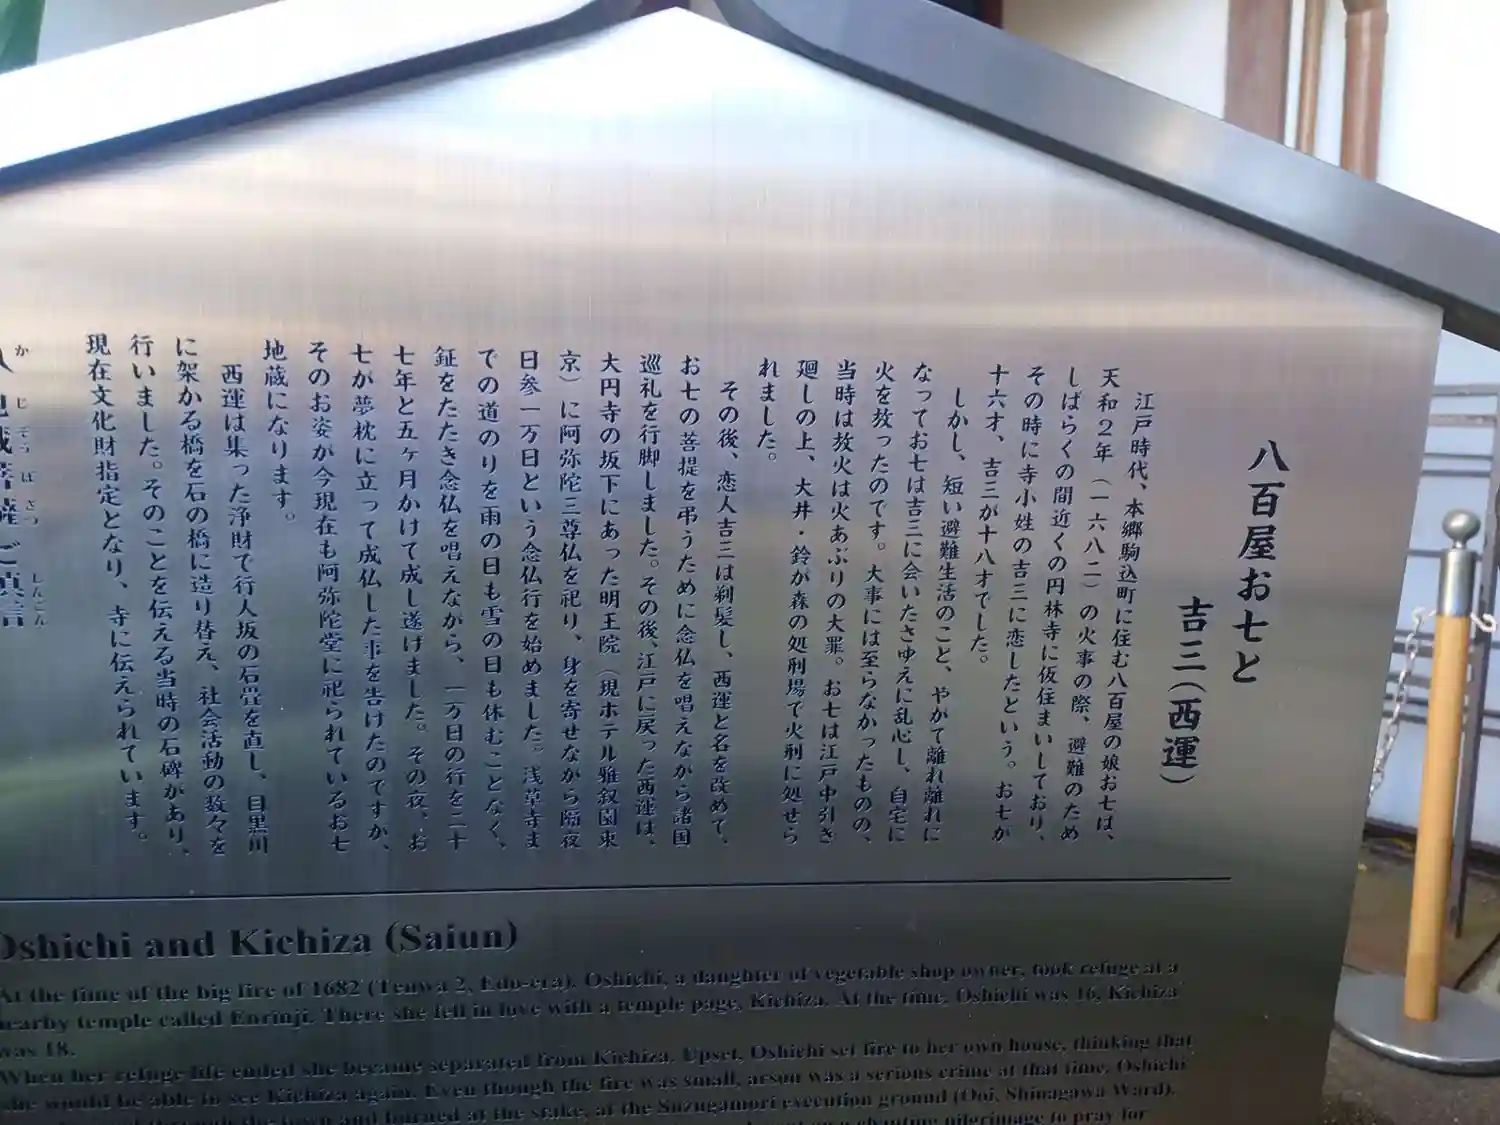 八百屋お七と
吉三(西運)
江戸時代、本郷駒込町に住む八百屋の娘お七は、
天和2年(一六八二)の火事の際、避難のため
しばらくの間近くの円林寺に仮住まいしており、
その時に寺小姓の吉三に恋したという。お七が
十六才、吉三が十八才でした。
しかし、短い避難生活のこと、やがて離れ離れに
なってお七は吉三に会いたさゆえに乱心し、自宅に
火を放ったのです。大事には至らなかったものの、
当時は放火は火あぶりの大罪。お七は江戸中引き
廻しの上、大井・鈴が森の処刑場で火刑に処せら
れました。
その後、恋人吉三は剃髪し、西運と名を改めて、
お七の菩提を弔うために念仏を唱えながら諸国
巡礼を行脚しました。その後、江戸に戻った西運は、
大円寺の坂下にあった明王院(現ホテル雅叙園東
京)に阿弥陀三尊仏を祀り、身を寄せながら隔夜
日参一万日という念仏行を始めました。浅草寺ま
での道のりを雨の日も雪の日も休むことなく、
鉦をたたき念仏を唱えながら、一万日の行を二十
七年と五ヶ月かけて成し遂げました。その夜、お
七が夢枕に立って成仏した事を告げたのですが、
そのお姿が今現在も阿弥陀堂に祀られているお七
地蔵になります。
西運は集った浄財で行人坂の石畳を直し、目黒川
に架かる橋を石の橋に造り替え、社会活動の数々を
行いました。そのことを伝える当時の石碑があり、
現在文化財指定となり、寺に伝えられています。
地蔵菩薩ご真言
Oshichi and Kichiza (Saiun)
At the time of the big fire of 1682 (Tenwa 2, Edo-era). Oshichi, a daughter of vegetable shop owner, took refuge at a
nearby temple called Enrinji. There she fell in love with a temple page, Kichiza. At the time, Oshichi was 16, Kichiza
was 18.
When her refuge life ended she became separated from Kichiza. Upset, Oshichi set fire to her own house, thinking that
she would be able to see Kichiza again. Even though the fire was small, arson was a serious crime at that time. Oshichi
through the town and burned at the stake, at the Suzugamori execution ground (Ooi, Shinagawa Ward).
a chanting pilgrimage to pray for